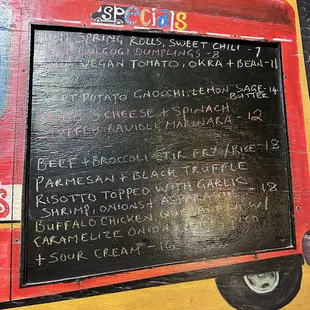 specials
MINI SPRING ROLLS, SWEET CHILI - 7
BULGOGI DUMPLINGS - 8
VEGAN TOMATO, OKRA + BEAN - 11
SWEET POTATO GNOCCHI, LEMON SAGE - 14
BUTTER
3 CHEESE + SPINACH
RAVIOLI MARINARA - 12
BEEF + BROCCOLI STIR FRY / RICE - 18
PARMESAN + BLACK TRUFFLE
RISOTTO TOPPED WITH GARLIC
SHRIMP, ONIONS + ASPARAGUS - 18
BUFFALO CHICKEN QUESADILLA W/
CARAMELIZE ONION
+ SOUR CREAM - 16